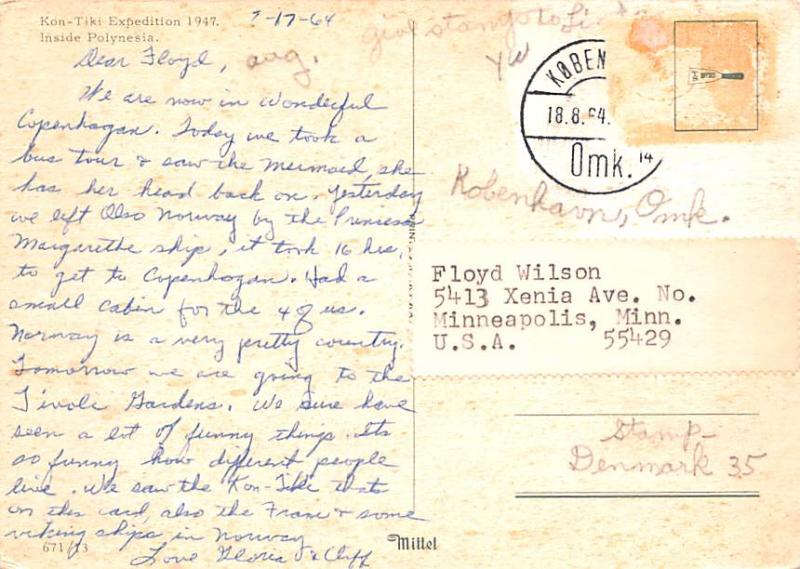 Kon-Tiki Expedition 1947.
Inside Polynesia.
7-17-64
give stamp to
Dear Floyd, aug.
We are now in wonderful
Copenhagan. Today we took a
bus tour & saw the mermaid, she
has her head back on. Yesterday
we left Olso Norway by the Princess
Margrethe ship, it took 16 hrs,
to get to Copenhagan. Had a
small cabin for the 4 of us.
Norway is a very pretty country.
Tomorrow we are going to the
Tivole Gardens. We sure have
seen a lot of funny things. Its
so funny how different people
live. We saw the Kon-Tiki thats
on this card, also the Fram & some
viking ships in Norway
Love Gloria & Cliff
671/13
Mittet
KØBEN
18.8.64.
Omk. 14
København, Omk.
Floyd Wilson
5413 Xenia Ave. No.
Minneapolis, Minn.
U.S.A. 55429
Stamp-
Denmark 35